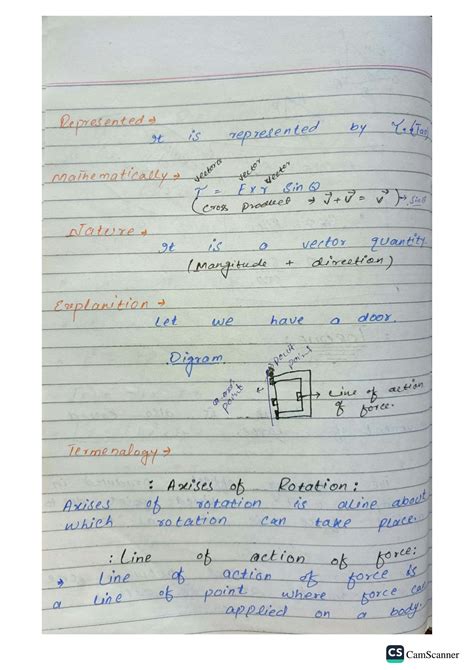 Represented →
It is represented by τ. (Tau)
Mathematically →
vector vector vector
τ = F x r Sin Q
(cross product → V + V = V) → sinθ
Nature →
It is a vector quantity.
(Mangitude + direction)
Explanition →
Let we have a door.
Digram
pivot
point
point
→ Line of action
of force.
Termenalogy →
: Axises of Rotation:
Axises of rotation is aline about
which rotation can take place.
: Line of action of force:
→ Line of action of force is
a line of point where force
applied on a body.
CS CamScanner